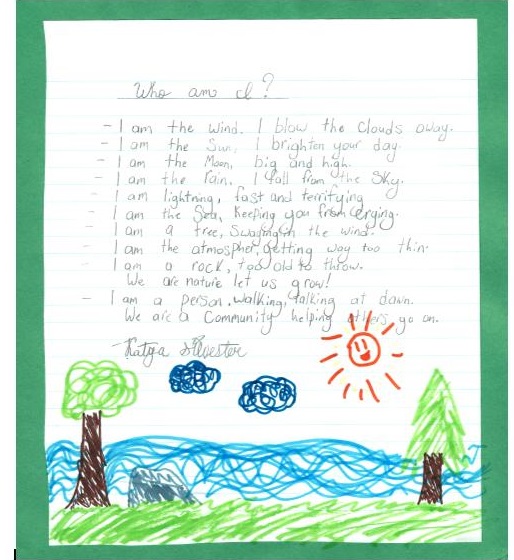 Who am I?
- I am the wind. I blow the clouds away.
- I am the Sun, I brighten your day.
- I am the Moon, big and high.
- I am the rain. I fall from the Sky.
- I am lightning, fast and terrifying
- I am the Sea, Keeping you from crying.
- I am a tree, Swaying in the wind.
- I am the atmospher, getting way too thin.
- I am a rock, too old to throw.
We are nature let us grow!
- I am a person, walking, talking at dawn.
We are a Community helping others go on.
Katya Silvester